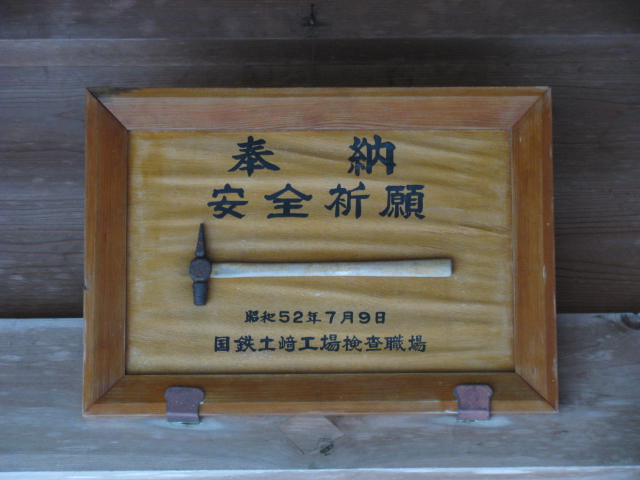 奉納
安全祈願
昭和52年7月9日
国鉄土崎工場検査職場